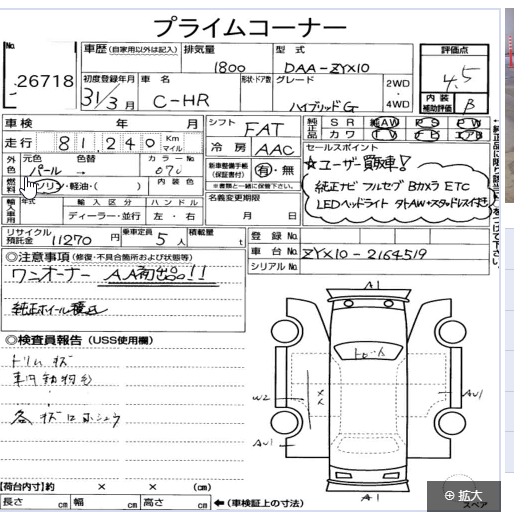 プライムコーナー
No.
26718
車歴 (自家用以外は記入) 排気量 型式
1800 DAA-ZYX10
評価点
4.5
初度登録年月 車名 形状・ドア数 グレード
31/3月 C-HR ハイブリッドG 2WD・4WD
内装補助評価 B
車検 年 月 シフト FAT
純正品 SR 純AW PS PW
カワ TV ナビ エアB
走行 81,240 Km マイル
冷房 AAC
セールスポイント
外色 元色 色替 カラーNo.
パール→ 070
新車整備手帳(保証書付) 有・無
※書類と一緒に保管下さい。
☆ユーザー買取車!
燃料 ガソリン・軽油・( ) 内装色
純正ナビ フルセグ Bカメラ ETC
名義変更期限
月 日
LEDヘッドライト
輸入車用 年式 輸入区分 ハンドル
ディーラー・並行 左・右
リサイクル預託金 11270円 乗車定員 5人 積載量 t
登録No.
車台No. ZYX10-2164519
シリアルNo.
◎注意事項 (修復・不具合箇所および状態等)
ワンオーナー AA初出品!!
純正ホイール積込
◎検査員報告 (USS使用欄)
トリム キズ
A1
W2
XX
AU1
AU1
A1
【荷台内寸】約 × × (cm)
長さ cm 幅 cm 高さ cm ←(車検証上の寸法)
スペア
拡大